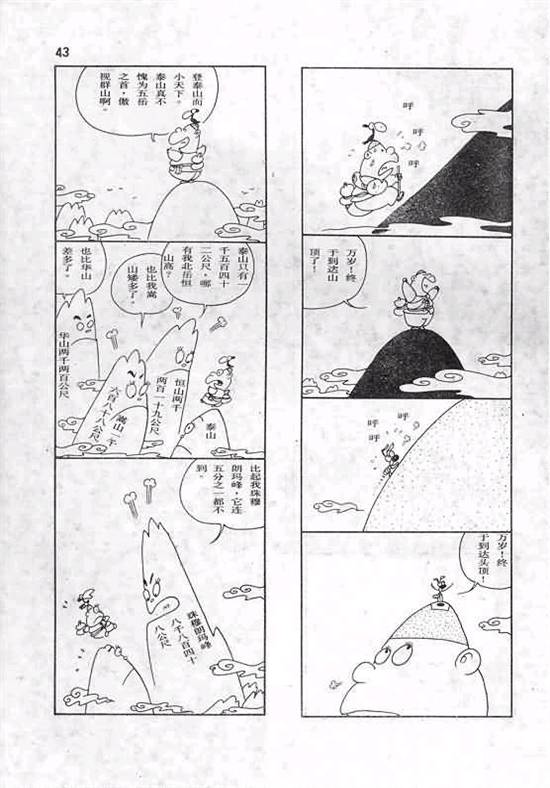 43
呼
呼
呼
万岁！终
于到达山
顶了！
呼
呼
呼
万岁！终
于到达头
顶！
登泰山而
小天下。
泰山真不
愧为五岳
之首，傲
视群山啊。
泰山只有
千五百四十
二公尺，哪
有我北岳恒
山高？
也比我嵩
山矮多了。
也比华山
差多了。
泰山
恒山两千
两百一十九公尺
嵩山一千
六百八十八公尺
华山两千两百公尺
比起我珠穆
朗玛峰，它连
五分之一都不
到。
珠穆朗玛峰
八千八百四十
八公尺